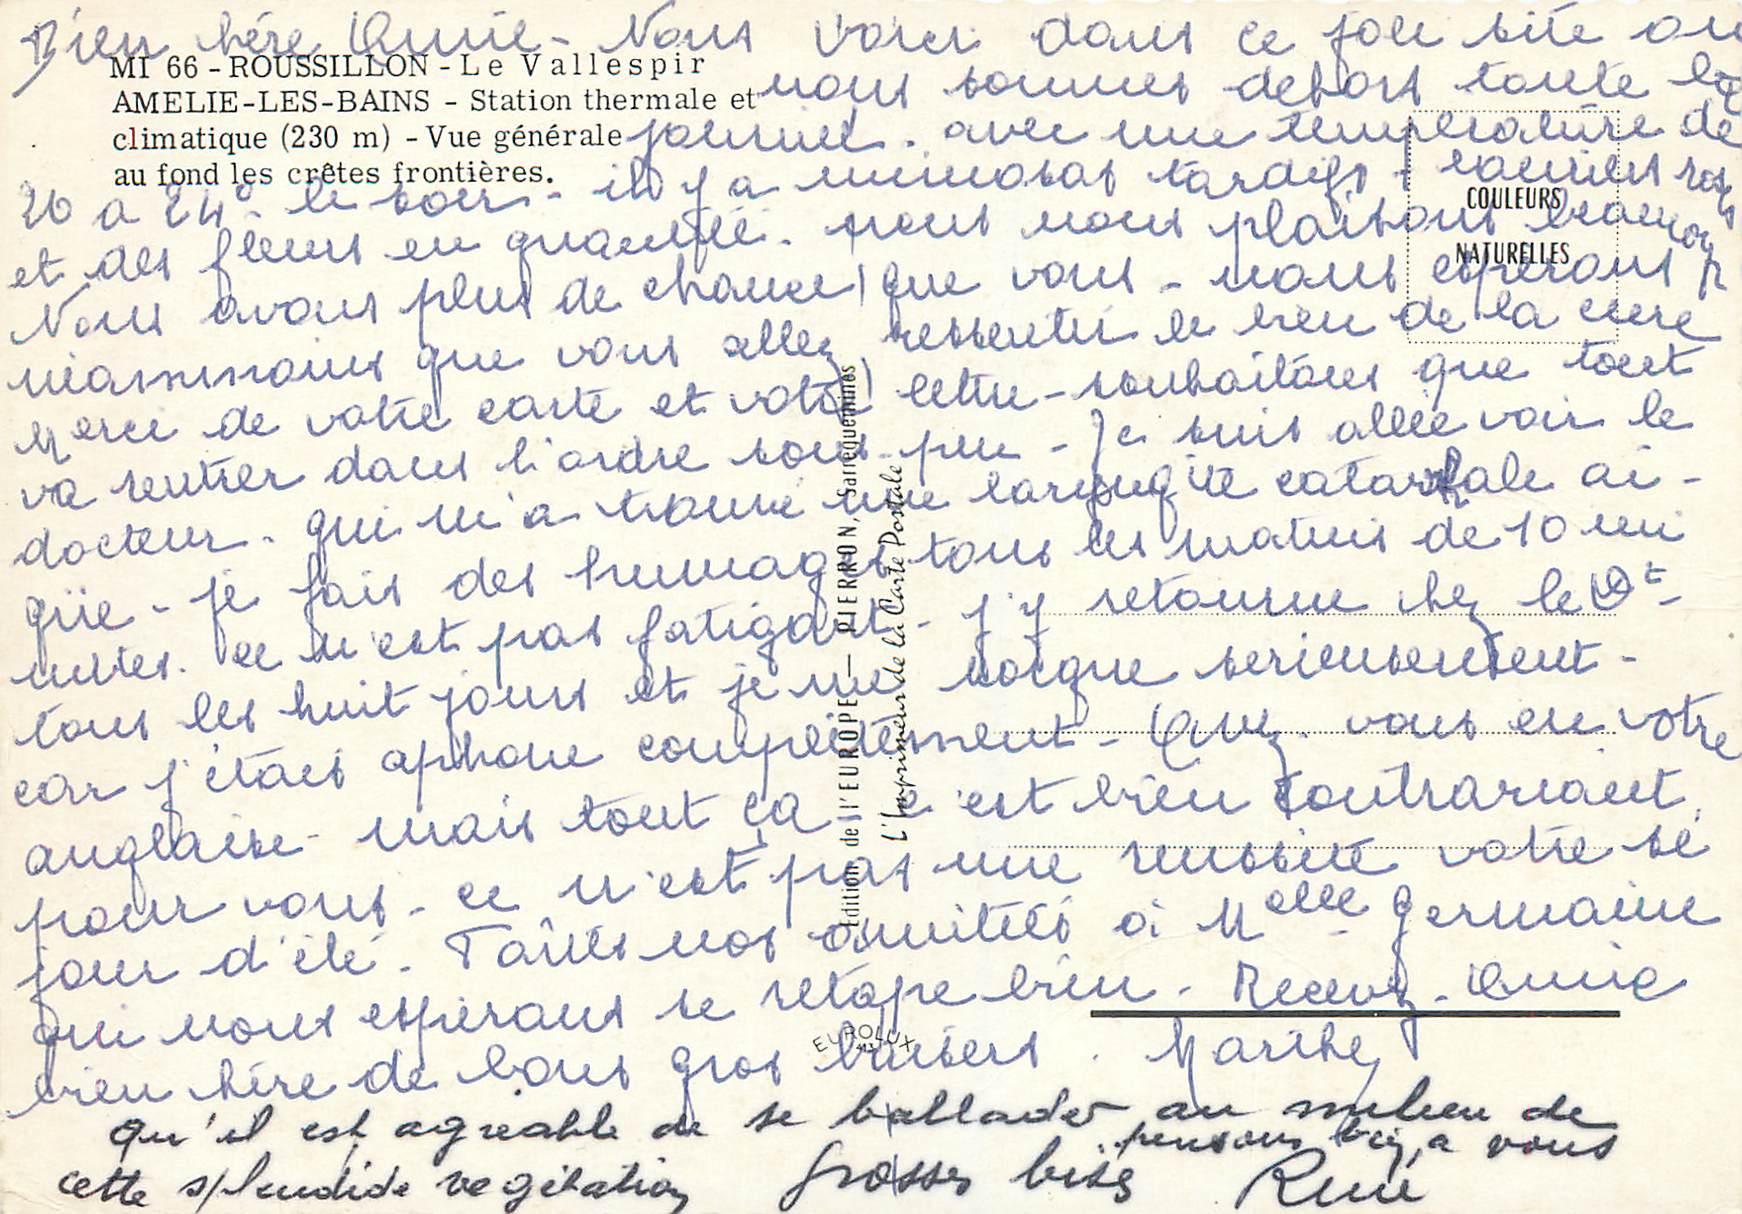 Bien chère Amie - Nous voici dans ce joli site où
MI 66 - ROUSSILLON - Le Vallespir
AMELIE-LES-BAINS - Station thermale et
climatique (230 m) - Vue générale
au fond les crêtes frontières.
nous sommes dehors toute la
journée. avec une température de
20 a 24° le soir - il y a mimosas tardifs - roses
et des fleurs en quantité. nous nous plaisons beaucoup
Nous avons plus de chance que vous - nous espérons
néanmoins que vous allez ressentir le bien de la cure
Merci de votre carte et votre lettre - souhaitons que tout
va rentrer dans l'ordre sous peu - Je suis allée voir le
docteur. qui m'a trouvé une laryngite catarrhale ai-
güe - je fais des humages tous les matins de 10 mi
nutes. ce n'est pas fatigant - j'y retourne chez le Dr -
tous les huit jours et je me soigne serieusement -
car j'étais aphone complètement - Amusez vous en votre
anglaise - mais tout ça c'est bien contrariant.
pour vous - ce n'est pas une reussite votre sé
jour d'été. Faites nos amitiés à Melle Germaine
qui nous espérons se retape bien - Recevez - Amie
bien chère de bons gros baisers. Marthe
qu'il est agréable de se ballader au milieu de
cette splendide vegetation
pensons bien a vous
Grosses bises René
COULEURS
NATURELLES
Edition de l'EUROPE — PIERRON, Sarreguemines
L'Imprimeur de la Carte Postale
EUROLUX